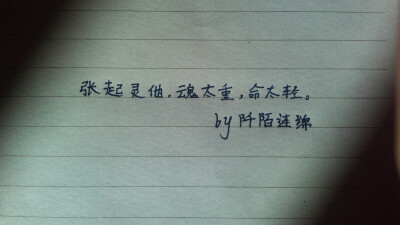 张起灵他.魂太重,命太轻。
by 阡陌连绵